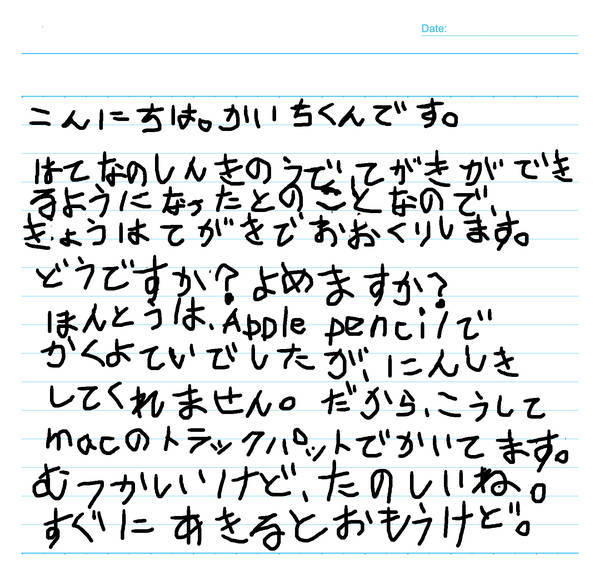 Date:
こんにちは。かいちくんです。
はてなのしんきのうで、てがきができ
るようになったとのことなので、
きょうはてがきでおおくりします。
どうですか？よめますか？
ほんとうは、Apple pencilで
かくよていでしたが、にんしき
してくれません。だから、こうして
macのトラックパットでかいてます。
むつかいいけど、たのしいね。
すぐにあきるとおもうけど。